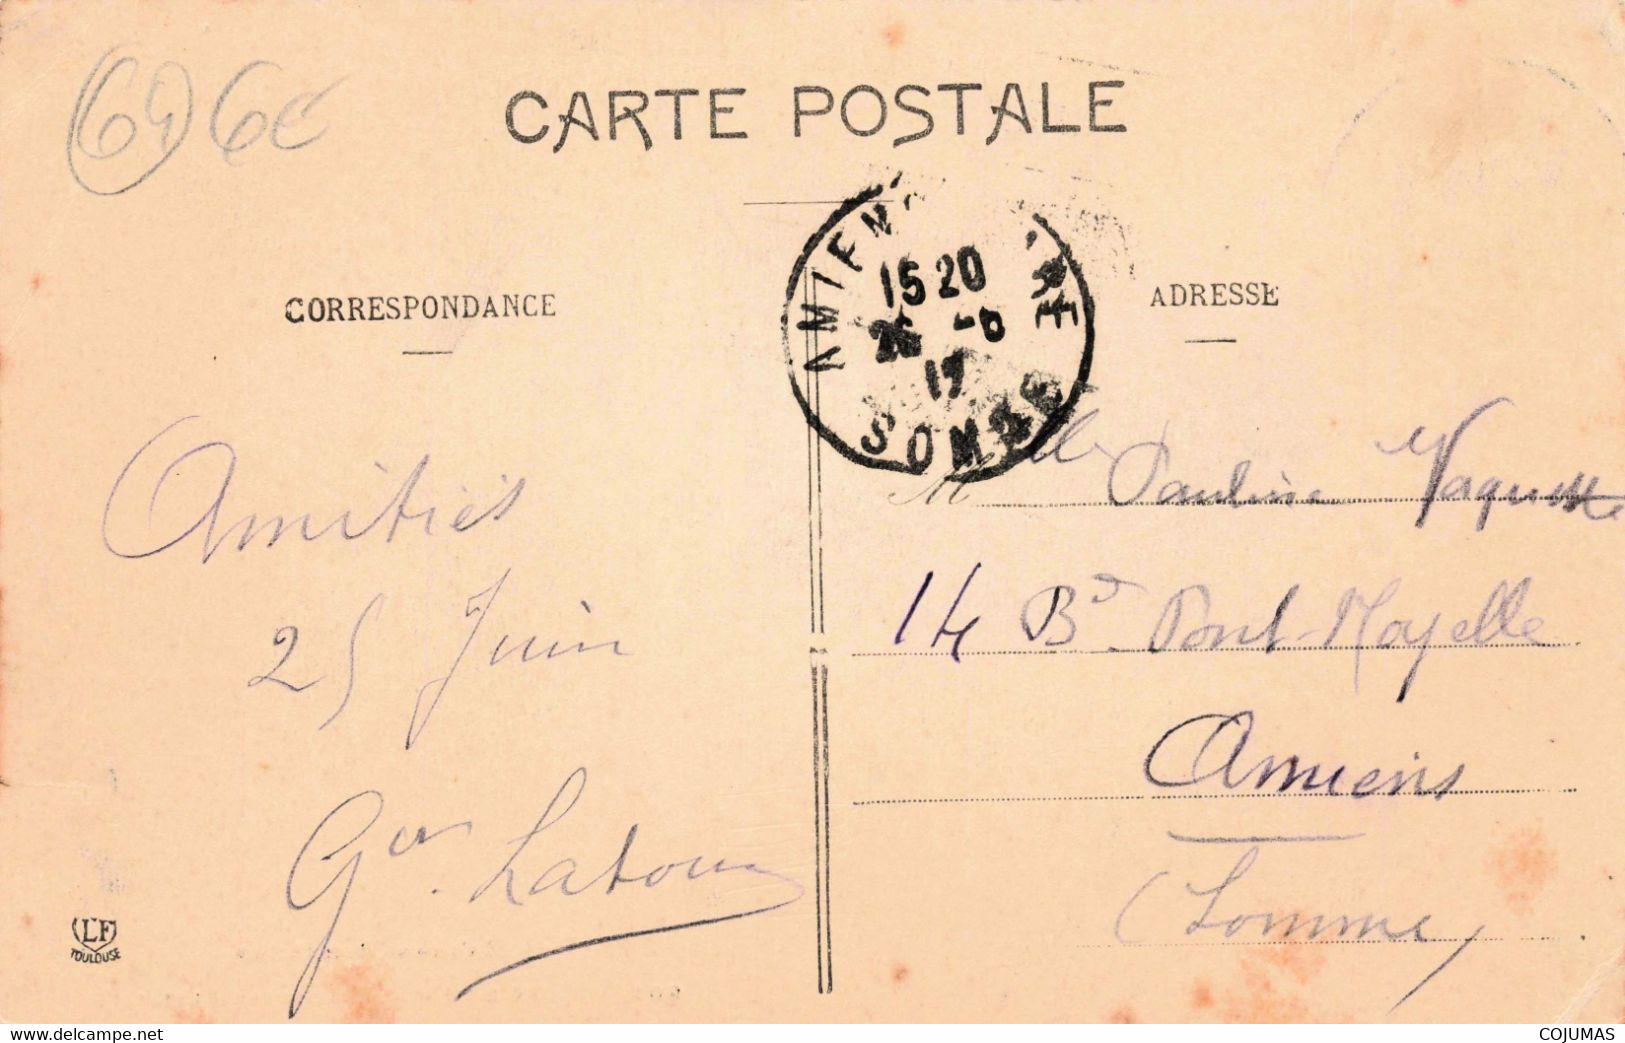 64 6€
CARTE POSTALE
AMIENS GARE
15 20
26 -6
17
SOMME
CORRESPONDANCE
ADRESSE
Amitiés
25 Juin
Latour
LF
TOULOUSE
Mlle Pauline Vaquette
14 Bd Pont-Noyelle
Amiens
(Somme)
www.delcampe.net
COJUMAS